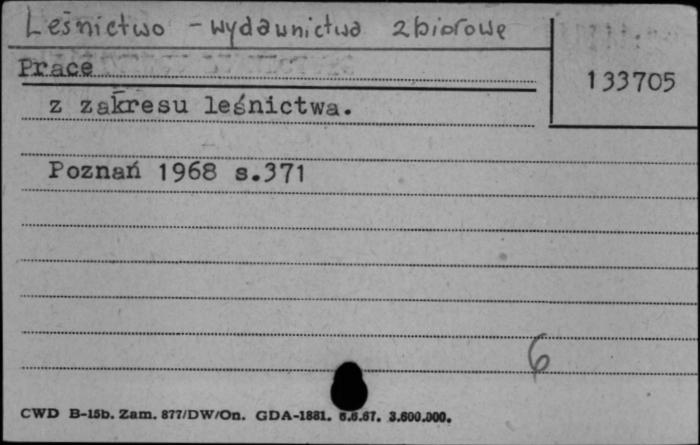 Leśnictwo - wydawnictwa zbiorowe
Prace
133705
z zakresu leśnictwa.
Poznań 1968 s.371
6
CWD B-15b. Zam. 877/DW/On. GDA-1881. 6.6.67. 3.600.000.